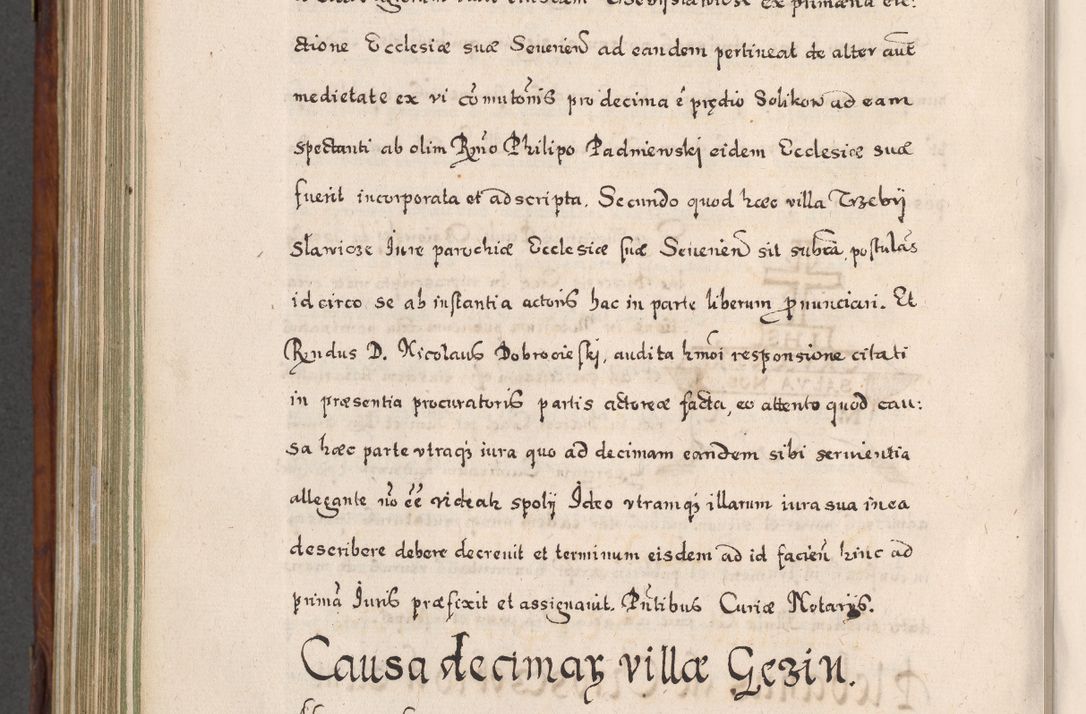 ctione Ecclesiæ suæ Seuerień ad eandem pertineat de alter aut
medietate ex vi cōmutōnis pro decima ē prędio Solikow ad eam
spectanti ab olim Rm̃o Philipo Padniewski eidem Ecclesiæ suæ
fuerit incorporata et adscripta. Secundo quod hæc villa Trzebij
sławicze Iure parochiæ Ecclesiæ suæ Seuerień sit subcā, postulās
idcirco se ab instantia actoris hac in parte liberum ꝓnunciari. Et
Rndus D. Nicolaus Dobrocieski, audita hmõi responsione citati
in præsentia procuratoris partis actoreæ facta, eo attento quod cau:
sa hæc parte vtraqȝ iura quo ad decimam eandem sibi seruientia
allegante nō ēē videatr spolij Ideo vtramqȝ illarum iura sua in ea
describere debere decreuit et terminum eisdem ad id facień hinc ad
primā Iuris præfixit et assignauit. Pñtibus Curiæ Notarijs.
Causa decimaꝝ villæ Gezin.